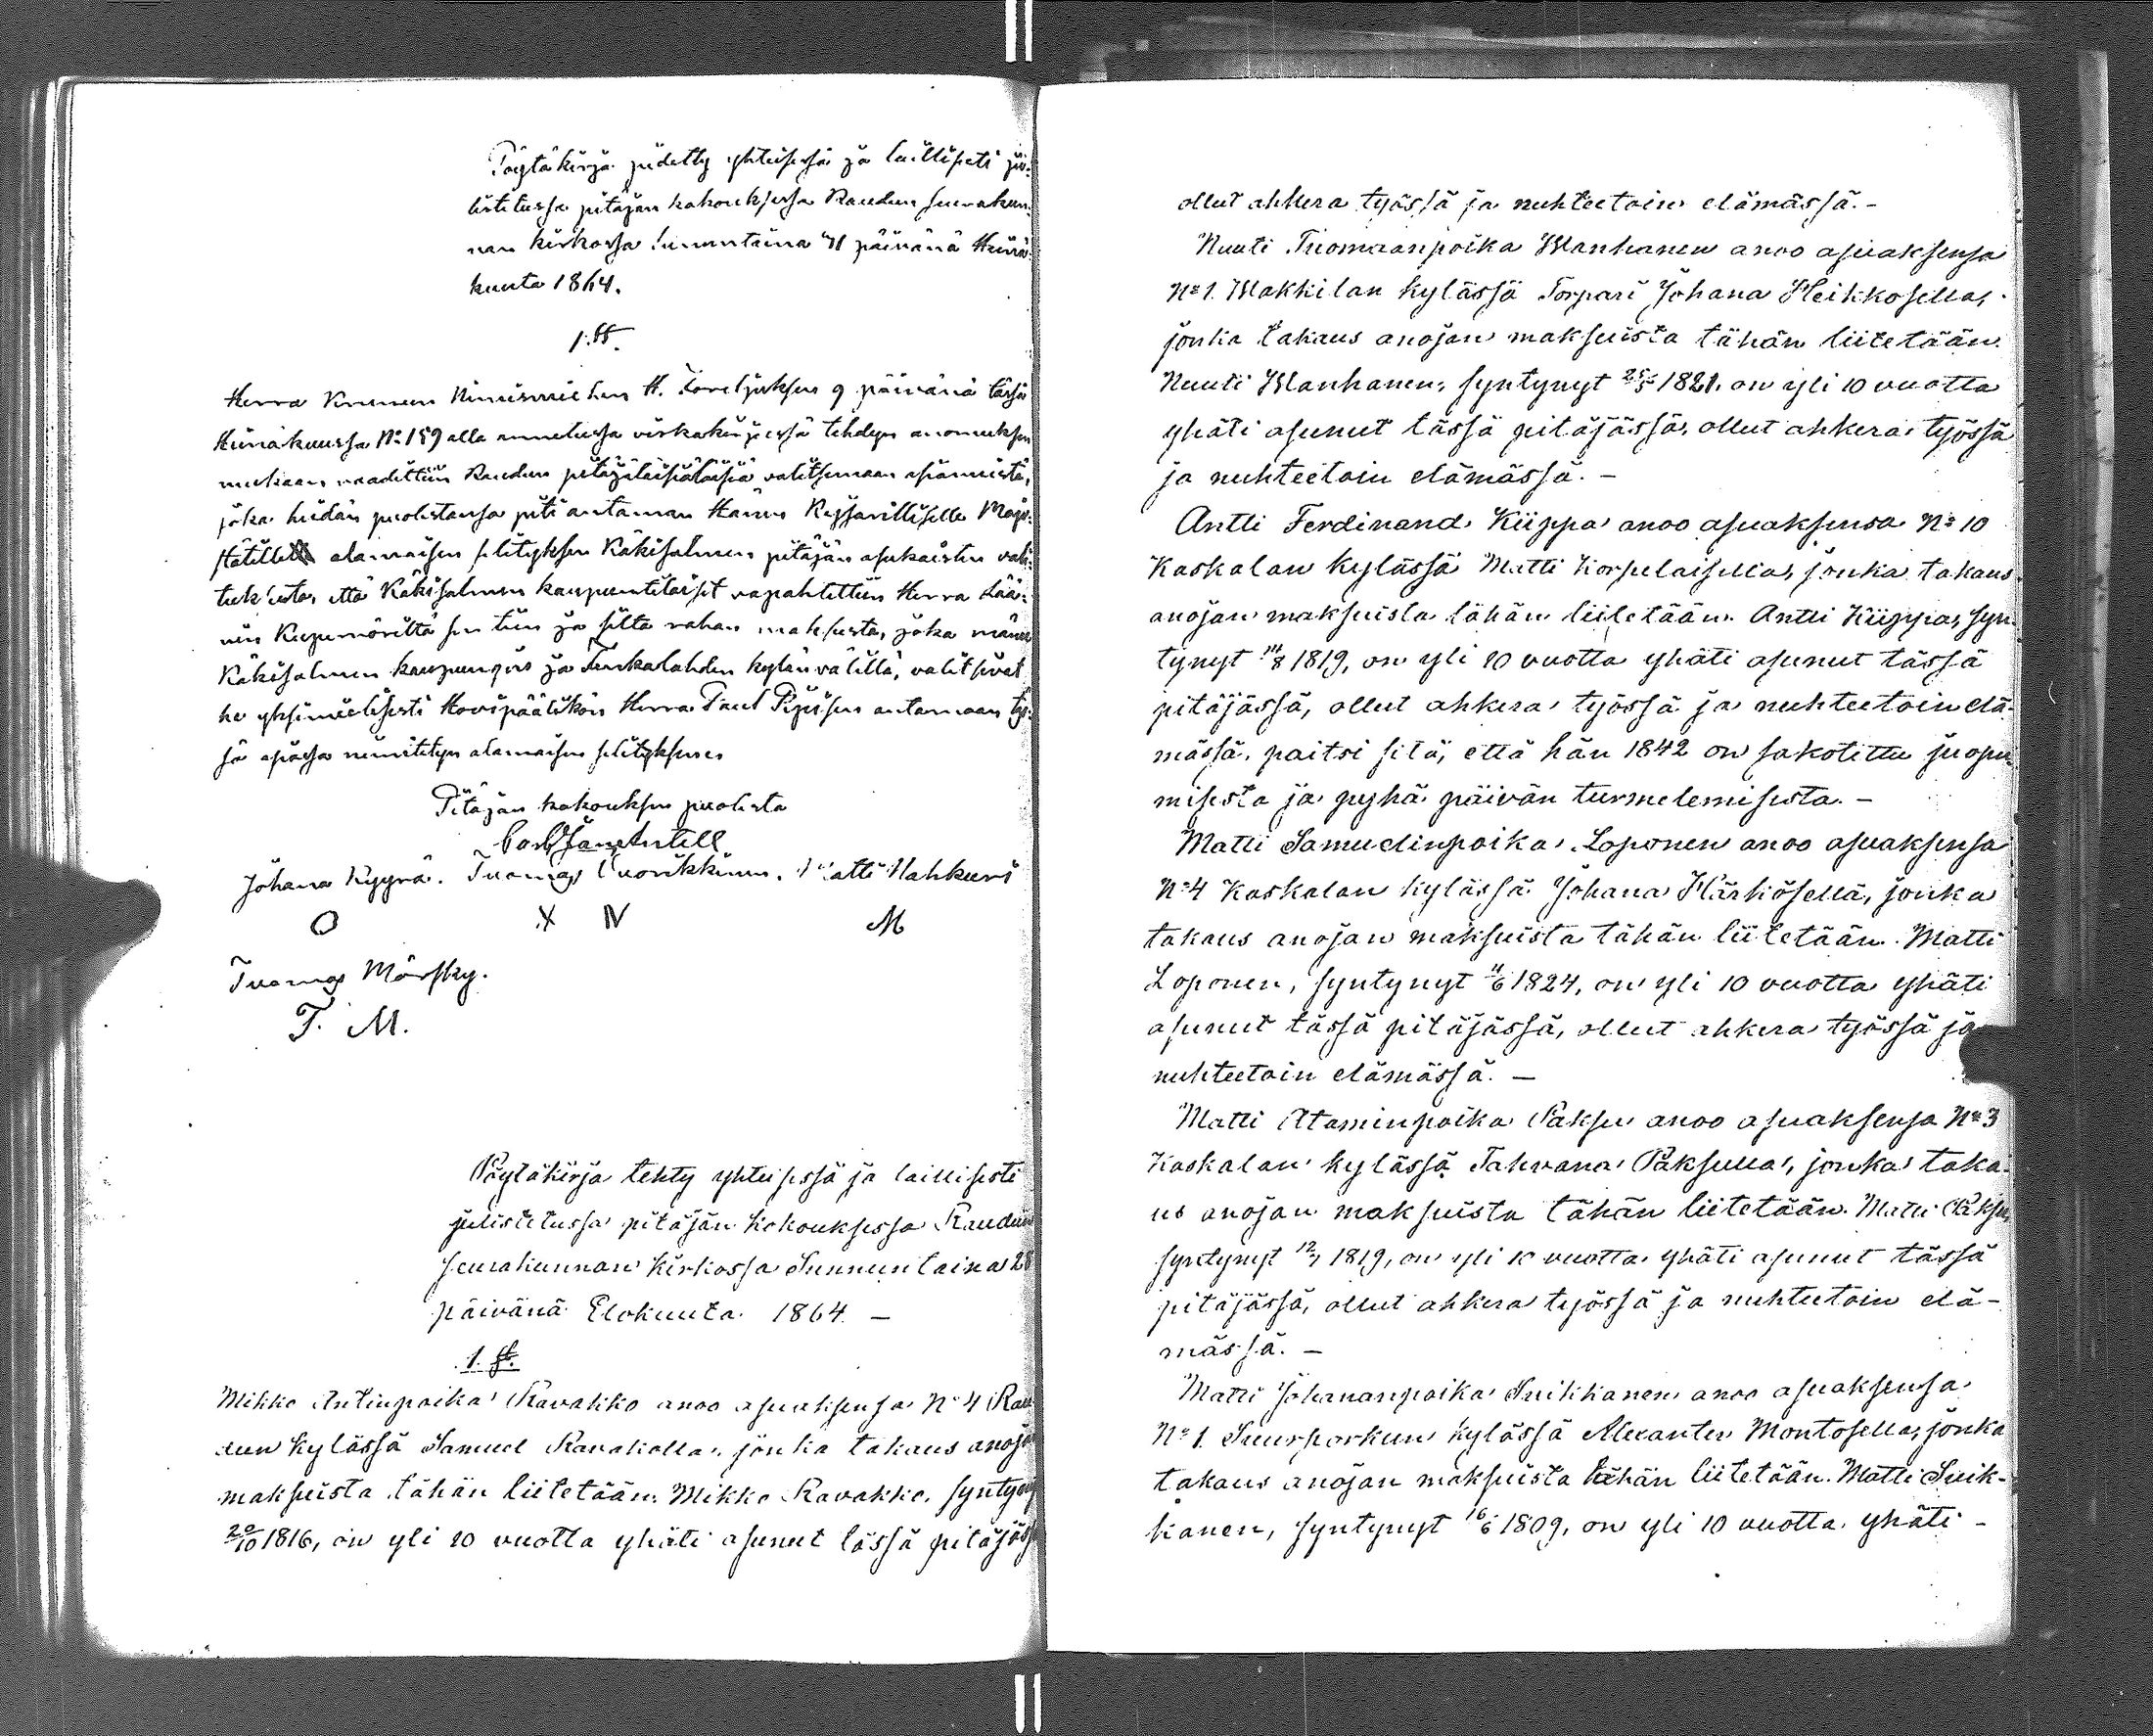 Pöytäkirja pidetty yhteisessä ja laillisesti ju-
listetussa pitäjän kokouksessa Raudun seurakun-
nan kirkossa Sunnuntaina 31 päivänä Heinä-
kuuta 1864.
1. §.
Herra Kruunun Nimismiehen H. päivänä tässä
Heinäkuussa No 159 alla annetussa virkakirjeessä tehdyn anomuksen
mukaan vaadittiin Raudun pitäjäläisiä valitsemaan asiamiestä,
joka heidän puolestansa piti antaman Hänen Keisarilliselle Maje-
stätille alamaisen selityksen Käkisalmen pitäjän asukaisten vali-
tuksesta, että Käkisalmen kaupuntilaiset vapahdettiin Herra Lää-
nin Kuvernöriltä sen tien ja silta rahan maksusta, joka menee
Käkisalmen kaupungin ja Tenkalahden kylän välillä, valitsivat
he yksimielisesti Hovipäälikön Herra Paul Pijisen antamaan täs-
sä asiassa nimitetyn alamaisen selityksen
Pitäjän kokouksen puolesta
Johana Kyyrä. Tuomas Vuorikkinen. Matti Hahkuri
O X IV M
Tuomas Mörsky.
T. M.
Pöytäkirja tehty yhteisessä ja laillisesti
julistetussa pitäjän kokouksessa Raudun
seurakunnan kirkossa Sunnuntaina 28
päivänä Elokuuta 1864 —
1. §.
Mikko Antinpoika Ravakko anoo asuaksensa No 4 Rau-
dun kylässä Samuel Ravakolla, jonka takaus anojan
maksuista tähän liitetään. Mikko Ravakko, syntynyt
20/10 1816, on yli 10 vuotta yhäti asunut tässä pitäjäss
ollut ahkera työssä ja nuhteetoin elämässä. -
Nuuti Tuomaanpoika Wanhanen anoo asuaksensa
No 1. Makkilan kylässä Torpari Johana Heikkosella,
jonka takaus anojan maksuista tähän liitetään.
Nuuti Wanhanen, syntynyt 25/5 1821, on yli 10 vuotta
yhäti asunut tässä pitäjässä, ollut ahkera työssä
ja nuhteetoin elämässä. -
Antti Ferdinand Kiippa anoo asuaksensa No 10
Kaskalan kylässä Matti Korpelaisella, jonka takaus
anojan maksuista tähän liitetään. Antti Kiippa, syn-
tynyt 14/8 1819, on yli 10 vuotta yhäti asunut tässä
pitäjässä, ollut ahkera työssä ja nuhteetoin elä-
mässä, paitsi sitä, että hän 1842 on sakotittu juopu-
misesta ja pyhä päivän turmelemisesta. -
Matti Samuelinpoika Loponen anoo asuaksensa
No 4 Kaskalan kylässä Johana Härkösellä, jonka
takaus anojan maksuista tähän liitetään. Matti
Loponen, syntynyt 11/6 1824, on yli 10 vuotta yhäti
asunut tässä pitäjässä, ollut ahkera työssä ja
nuhteetoin elämässä. —
Matti Ataminpoika Paksu anoo asuaksensa No 3
Kaskalan kylässä Tahvana Paksulla, jonka taka-
us anojan maksuista tähän liitetään. Matti Paksu,
syntynyt 12/7 1819, on yli 10 vuotta yhäti asunut tässä
pitäjässä, ollut ahkera työssä ja nuhteetoin elä-
mässä. —
Matti Johananpoika Suikkanen anoo asuaksensa
No 1. Suurporkun kylässä Alexanter Montosella, jonka
takaus anojan maksuista tähän liitetään. Matti Suik-
kanen, syntynyt 16/6 1809, on yli 10 vuotta yhäti -